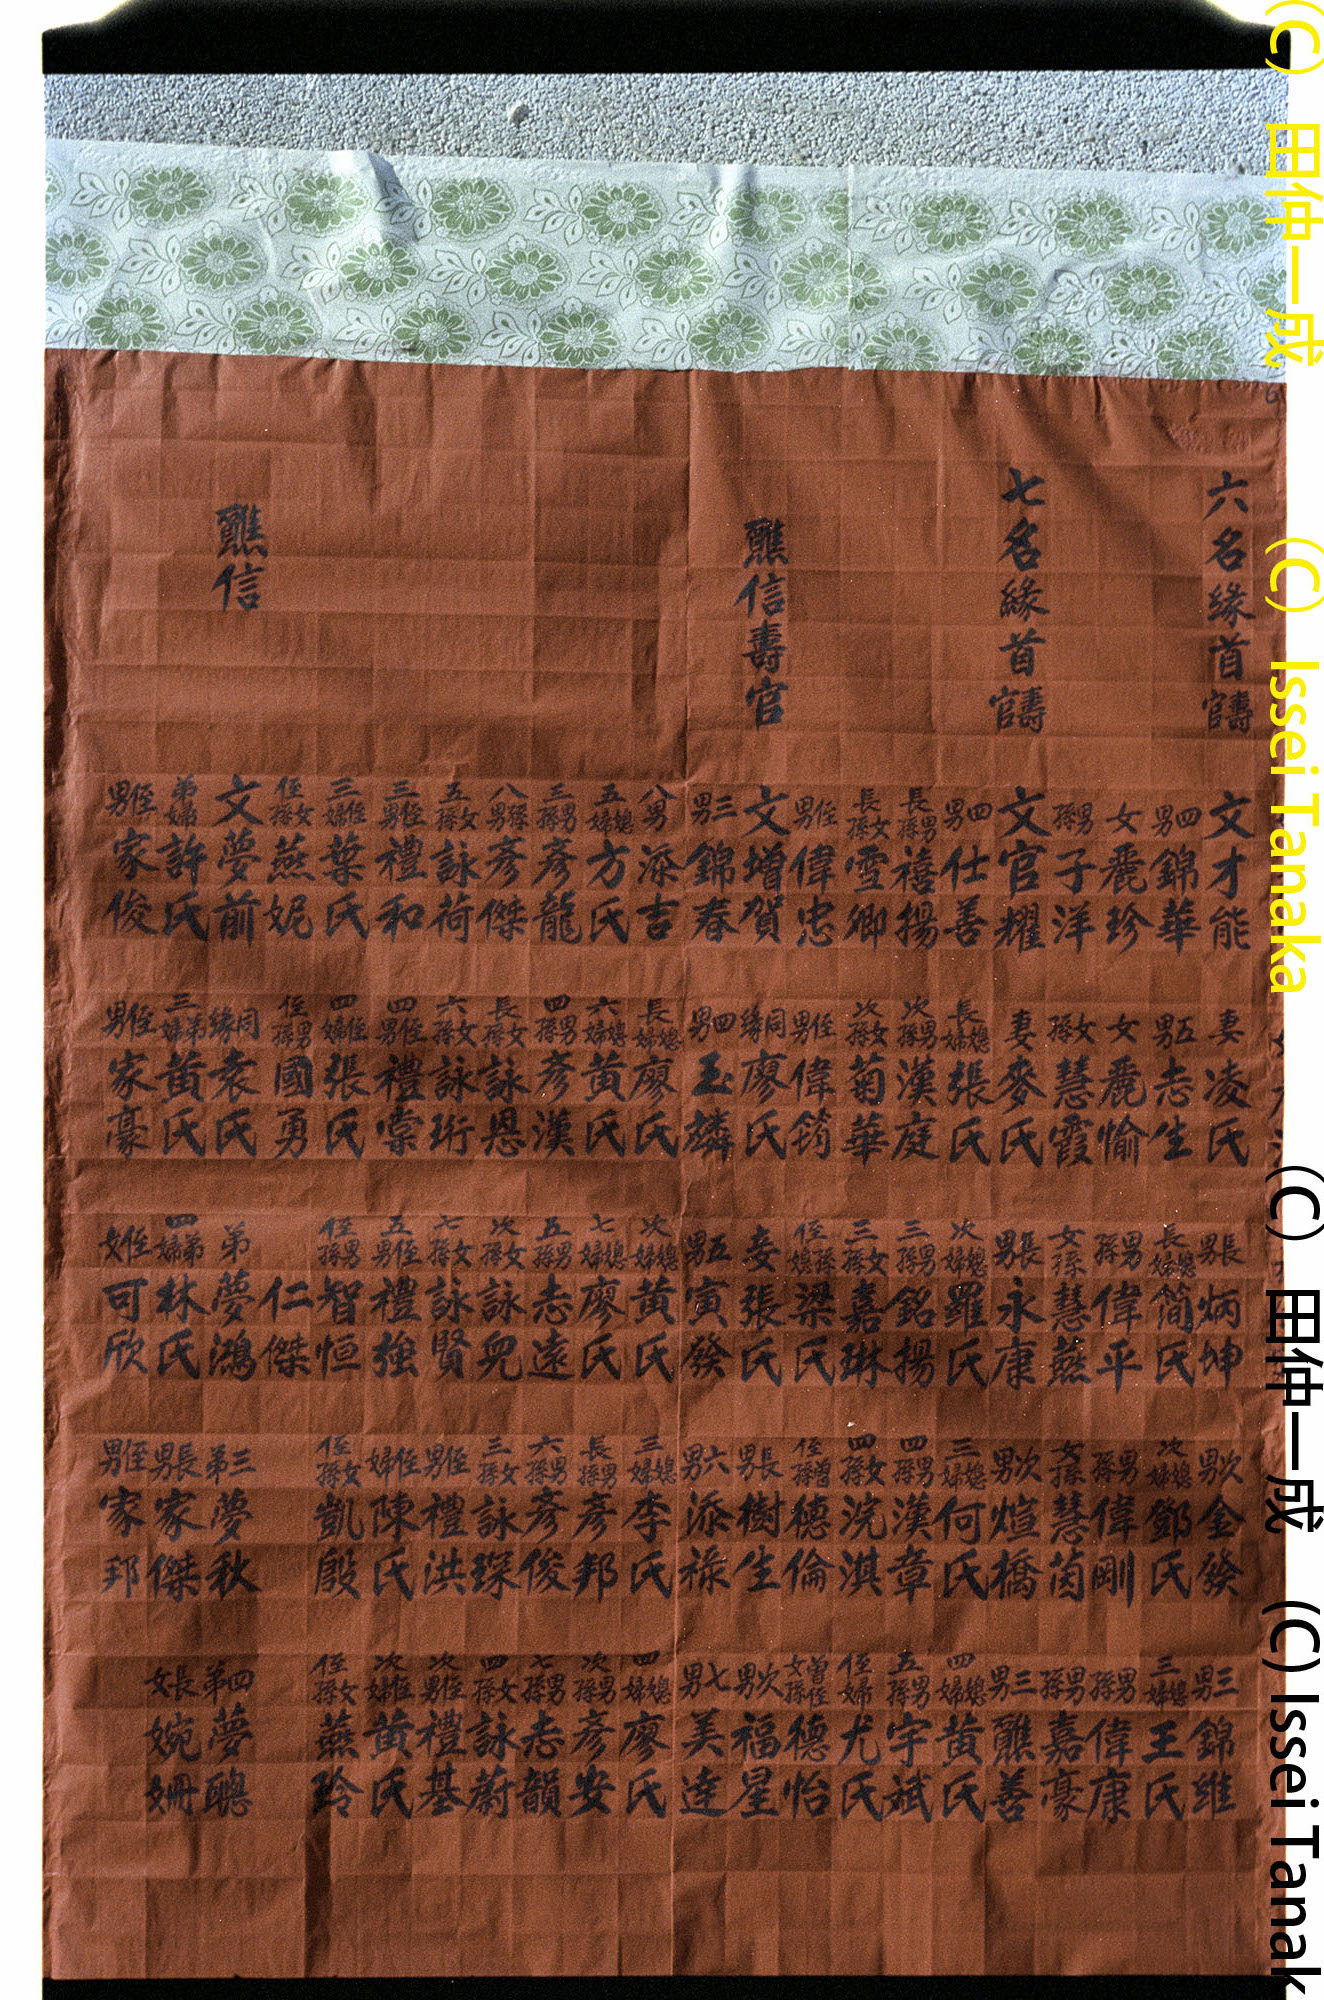 六名緣首壽官 文才能 妻凌氏 長男炳坤 次男金發 三男錦維
四男錦華 五男志生 長媳婦簡氏 次媳婦鄧氏 三媳婦王氏
女麗珍 女麗愉 男孫偉平 男孫偉剛 男孫偉康
男孫子洋 女孫慧霞 女孫慧燕 女孫慧茵 男孫嘉豪
七名緣首壽官 文官耀 妻麥氏 長男永康 次男煊橋 三男醮善
四男仕善 長媳婦張氏 次媳婦羅氏 三媳婦何氏 四媳婦黃氏
長男孫禧揚 次男孫漢庭 三男孫銘揚 四男孫漢章 五男孫宇斌
長女孫雪卿 次女孫菊華 三女孫嘉琳 四女孫浣淇 侄婦尤氏
侄男偉忠 侄男偉筠 侄孫媳梁氏 侄曾孫德倫 曾侄女孫德怡
醮信壽官 文增賀 同緣廖氏 妾張氏 長男樹生 次男福星
三男錦春 四男玉麟 五男寅發 六男添祿 七男美達
八男添吉 長媳婦廖氏 次媳婦黃氏 三媳婦李氏 四媳婦廖氏
五媳婦方氏 六媳婦黃氏 七媳婦廖氏 長男孫彥邦 次男孫彥安
三男孫彥龍 四男孫彥漢 五男孫志遠 六男孫彥俊 七男孫志韻
八男孫彥傑 長女孫詠恩 次女孫詠兒 三女孫詠琛 四女孫詠蔚
五女孫詠荷 六女孫詠珩 七女孫詠賢 侄男禮洪 次侄男禮基
三侄男禮和 四侄男禮棠 五侄男禮強 侄婦陳氏 次侄婦黃氏
三侄婦葉氏 四侄婦張氏 侄男孫智恒 侄女孫凱殷 侄女孫燕玲
侄女孫燕妮 侄男孫國勇 仁傑
醮信 文夢前 同緣袁氏 弟夢鴻 三弟夢秋 四弟夢聰
弟婦許氏 三弟婦黃氏 四弟婦林氏 長男家傑 長女婉姍
侄男家俊 侄男家豪 侄女可欣 侄男家邦
(C) 田仲一成 (C) Issei Tanaka
(C) 田仲一成 (C) Issei Tanak